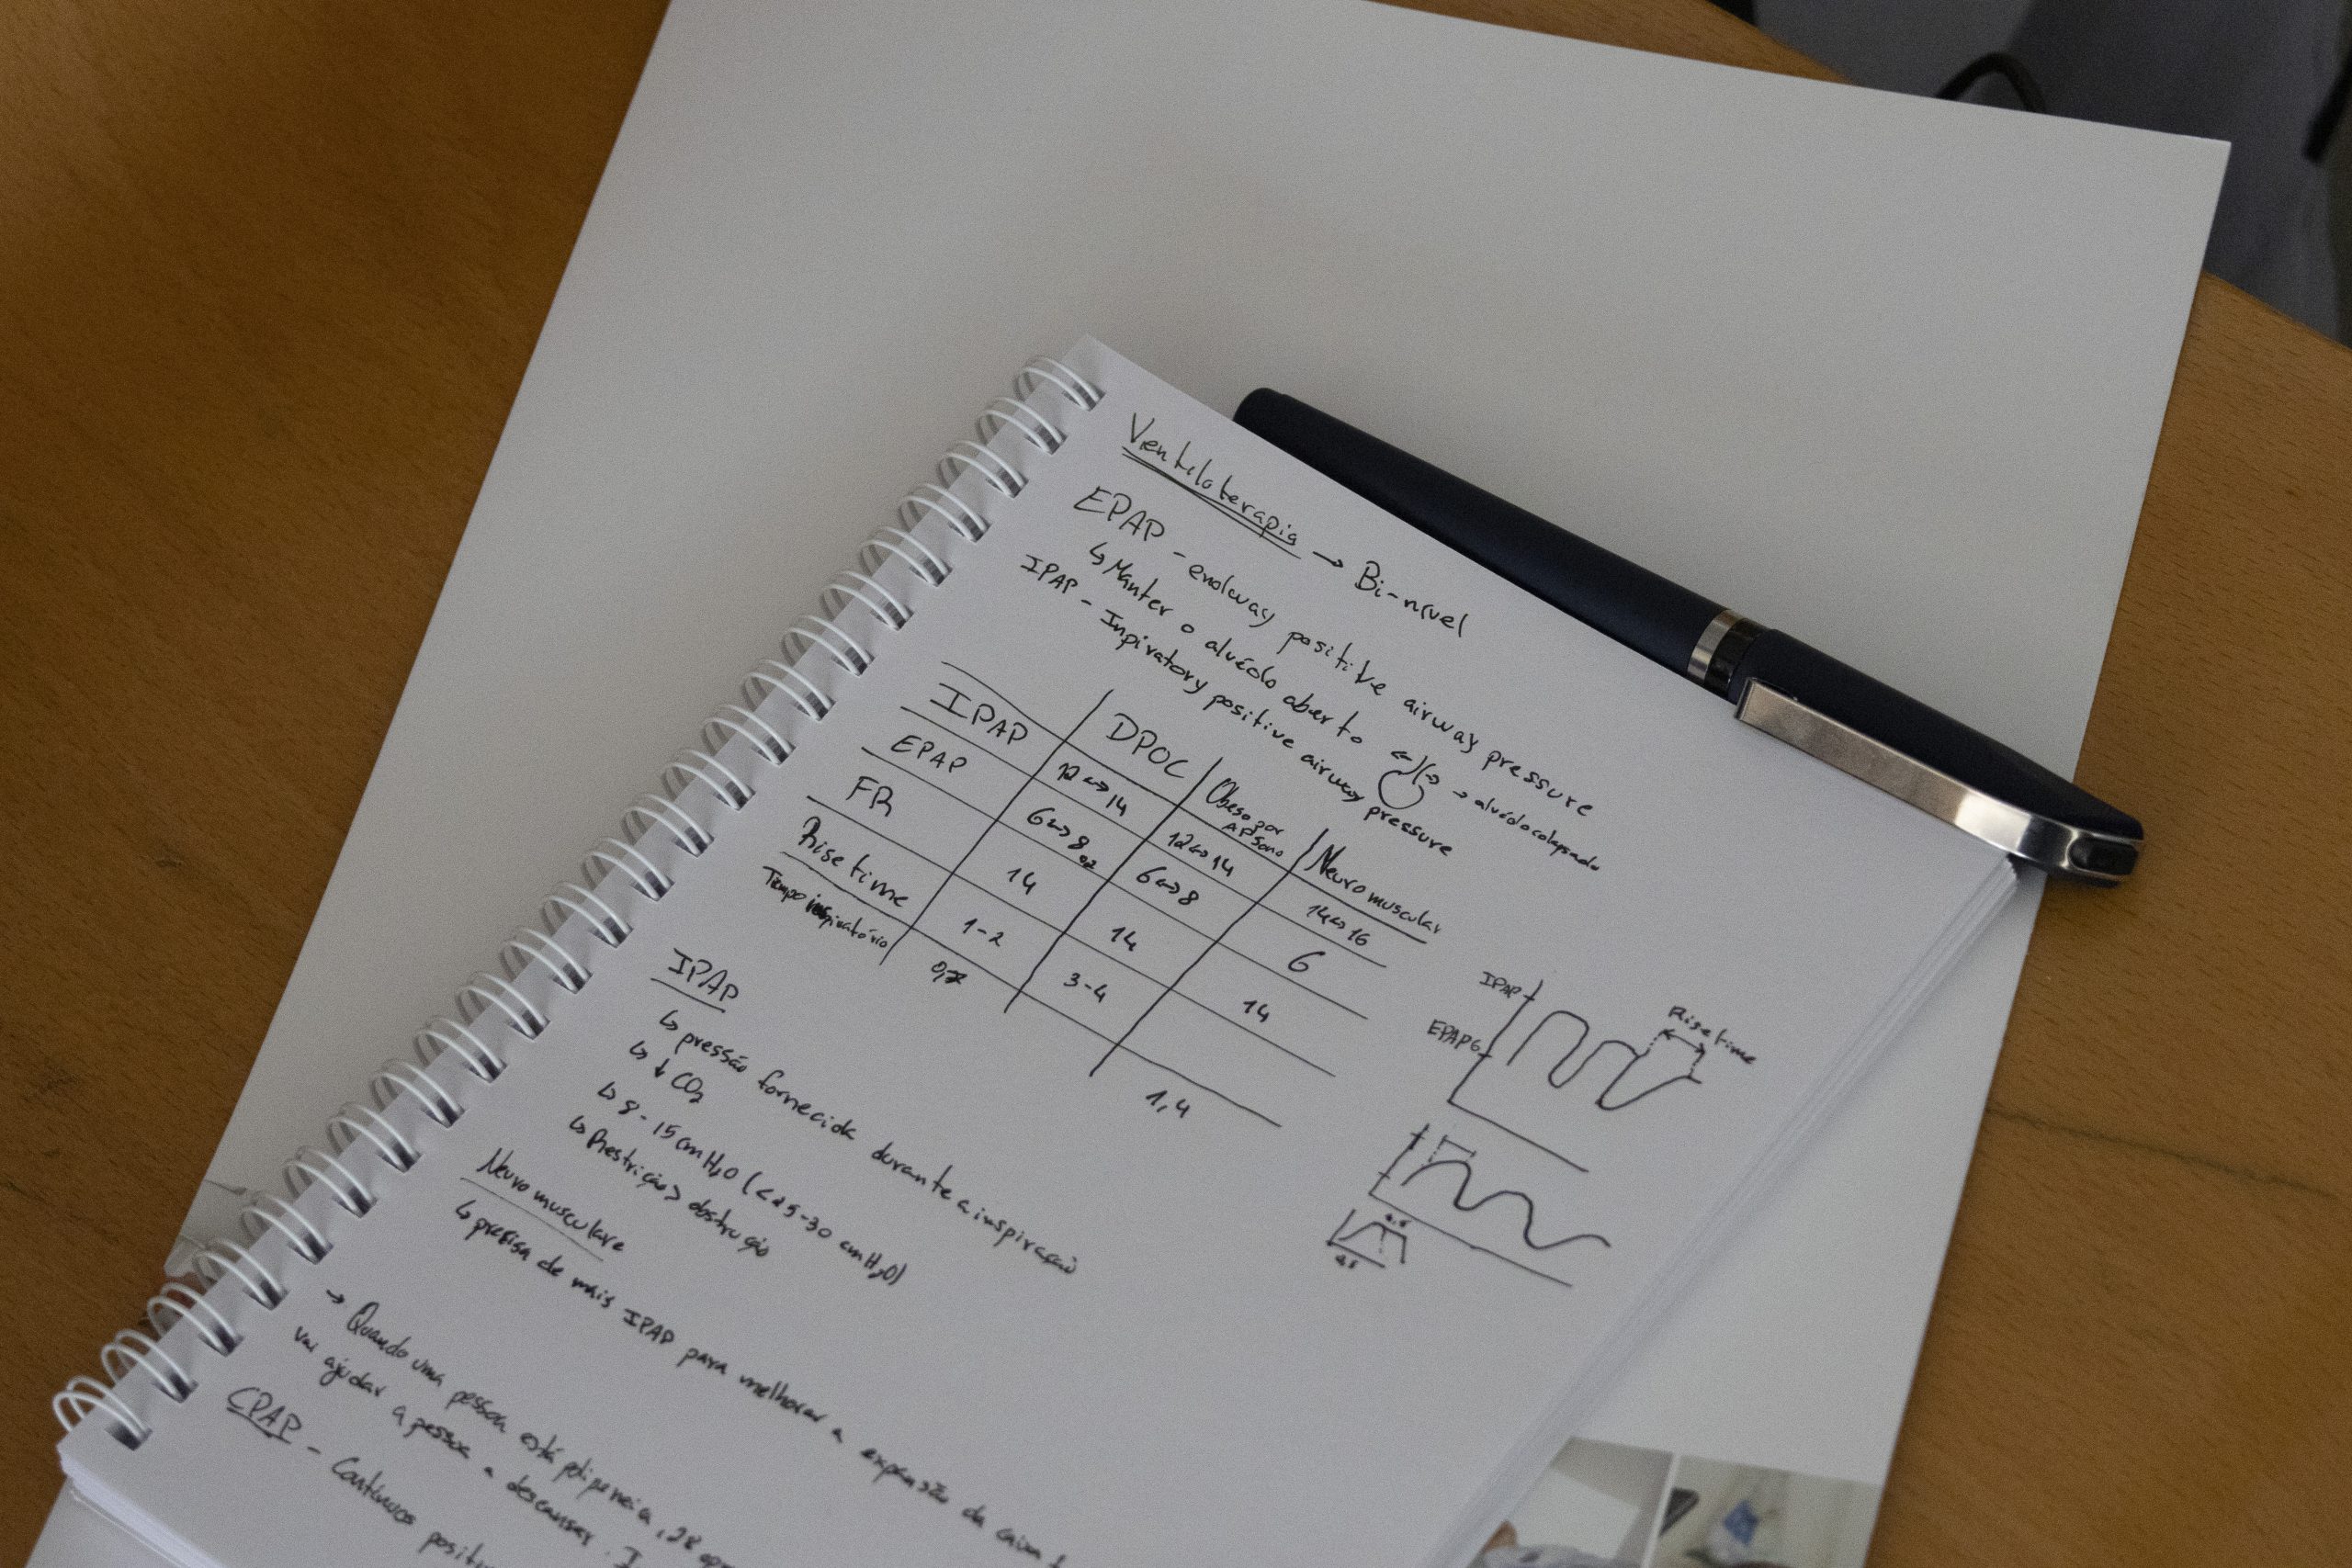 Ventiloterapia → Bi-nível
EPAP - endway positive airway pressure
↳ Manter o alvéolo aberto → alvéolo colapsado
IPAP - Inpiratory positive airway pressure
DPOC Obeso por AP Sono Neuromuscular
IPAP 12↔14 12↔14 14↔16
EPAP 6↔8 6↔8 6
FR 14 14 14
Rise time 1-2 3-4
Tempo inspiratório 1,4
IPAP
↳ pressão fornecida durante a inspiração
↳ ↓ CO₂
↳ 8-15 cmH₂O (<25-30 cmH₂O)
↳ Restrição > obstrução
Neuromusculare
↳ precisa de mais IPAP para melhorar a expansão da caixa
→ Quando uma pessoa está , 28
vai ajudar a pessoa a descansar.
CPAP - Contínuos
IPAP
EPAP 6
Rise time